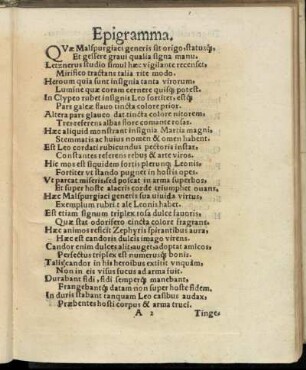 Epigramma.
QVæ Malspurgiaci generis sit origo, statusq́;
Et gessere graui qualia signa manu.
Letznerus studio simul hæc vigilante recenset,
Mirifico tractans talia rite modo.
Heroum quia sunt insignia tanta virorum,
Lumine quæ coram cernere quisq; potest.
In Clypeo rubet insignis Leo fortiter, estq́;
Pars galeæ flauo tincta colore prior.
Altera pars glauco dat tincta colore nitorem,
Tres&eram; albas flore comante rosas.
Hæc aliquid monstrant insignia Martis magni,
Stemmatis ac huius nomen & omen habent.
Est Leo cordati rubicundus pectoris instar,
Constantes referens rebus & arte viros.
Hic mos est siquidem fortis plerunq; Leonis,
Fortiter vt stando pugnet in hostis opes.
Vt parcat miseris, sed pulcat in arma superbos,
Et super hoste alacris corde triumphet ouans.
Hæc Malspurgiaci generis sua viuida virtus,
Exemplum rubri talle Leonis habet.
Est etiam signum triplex rosa dulce fauoris,
Quæ stat odorifero cincta colore fragrans.
Hæc animos reficit Zephyris spirantibus aura,
Hæc est candoris dulcis imago virens.
Candor enim dulces alit auget adoptat amicos,
Perfectus triplex est numerusq́; bonis.
Talis candor in his heroibus extitit vnquam,
Non in eis visus fucus ad arma fuit.
Durabant fidi, fidi semperq́; manebant,
Frangebantq́; datam non super hoste fidem.
In duris stabant tanquam Leo casibus audax,
Præbentes hosti corpus & arma truci.
A 2 Tinge-